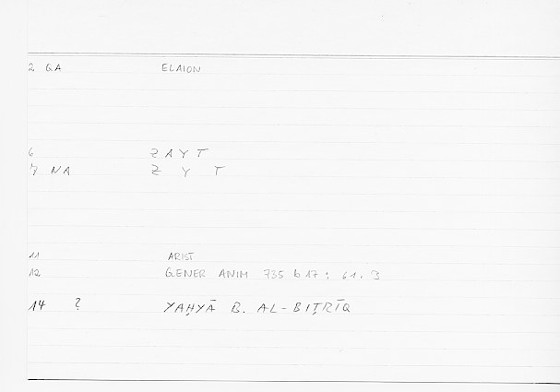 2 GA ELAION
6 ZAYT
7 NA Z Y T
11 ARIST
12 GENER ANIM 735 b 17 : 61.3
14 ? YAḤYĀ B. AL-BIṬRĪQ